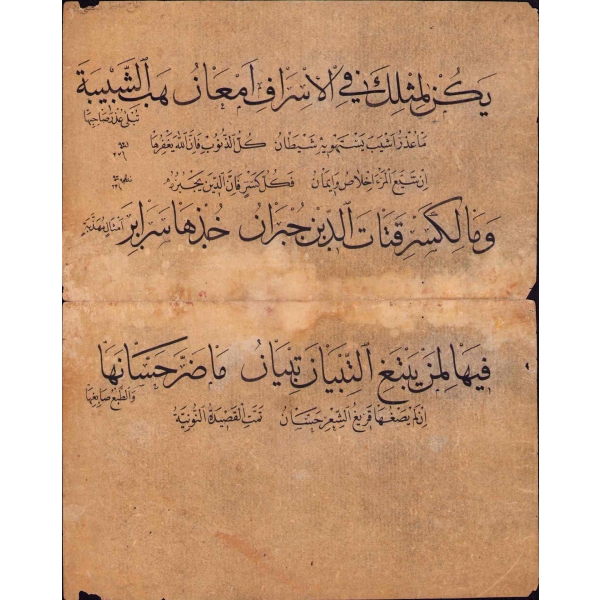 يَكُنْ لِمِثْلِكَ فِي الْاِسْرَافِ اِمْعَانُ هَبِ الشَّبِيبَةَ
تُبْلِي عُذْرَ صَاحِبِهَا
مَا عُذْرُ اَشْيَبَ يَسْتَهْوِيهِ شَيْطَانُ كُلُّ الذُّنُوبِ فَاِنَّ اللّٰهَ يَغْفِرُهَا
اِنْ شَيَّعَ الْمَرْءَ اِخْلَاصٌ وَاِيمَانُ فَكُلُّ كَسْرٍ فَاِنَّ الدِّينَ يَجْبُرُهُ
وَمَا لِكَسْرِ قَنَاتِ الدِّينِ جُبْرَانُ خُذْهَا سَرَايِرَ اَمْثَالٍ مُهَذَّبَةٍ
فِيهَا لِمَنْ يَبْتَغِ التِّبْيَانَ تِبْيَانُ مَا ضَرَّ حَسَّانَهَا
وَالطَّبْعُ صَايِغُهَا
اِنْ لَمْ يَصُغْهَا قَرِيعُ الشِّعْرِ حَسَّانُ تَمَّتِ الْقَصِيدَةُ النُّونِيَّةُ